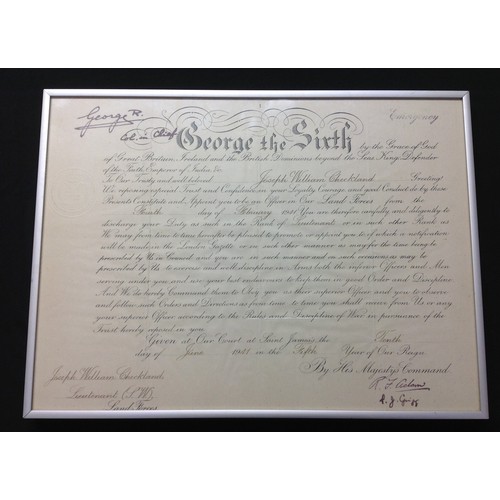 George R.
Col. in Chief
Emergency
George the Sixth by the Grace of God
of Great Britain, Ireland and the British Dominions beyond the Seas King, Defender
of the Faith, Emperor of India, &c.
To Our Trusty and well beloved Joseph William Checkland Greeting!
We reposing especial Trust and Confidence in your Loyalty, Courage and good Conduct do by these
Presents Constitute and Appoint you to be an Officer in Our Land Forces from the
day of February 1941. You are therefore carefully and diligently to
discharge your Duty as such in the Rank of Lieutenant or in such other Rank as
We may from time to time hereafter be pleased to promote or appoint you to of which a notification
will be made in the London Gazette or in such other manner as may for the time being be
prescribed by Us in Council and you are in such manner and on such occasions as may be
prescribed by Us to exercise and well discipline in Arms both the inferior Officers and Men
serving under you and use your best endeavours to keep them in good Order and Discipline
And We do hereby Command them to Obey you as their superior Officer and you to observe
and follow such Orders and Directions as from time to time you shall receive from Us or any
your superior Officer according to the Rules and Discipline of War in pursuance of the
Trust hereby reposed in you.
Given at Our Court at Saint James's the Tenth
day of June 1941 in the Fifth Year of Our Reign
By His Majesty's Command
Joseph William Checkland
Lieutenant
Land Forces